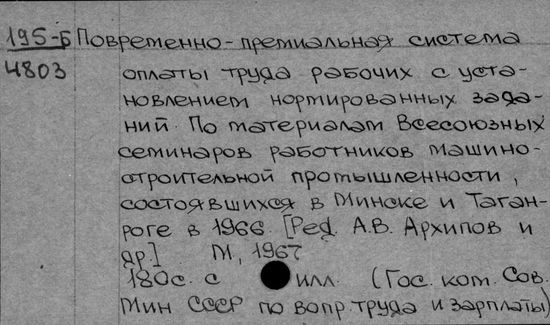 195-Б Повременно-премиальная система
4803 оплаты труда рабочих с уста-
новлением нормированных зада-
ний. По материалам Всесоюзных
семинаров работников машино-
строительной промышленности,
состоявшихся в Минске и Таган-
роге в 1966. [Ред. А.В. Архипов и
др.] М, 1967
180с. с илл. (Гос. ком. Сов.
Мин СССР по вопр. труда и зарплаты)